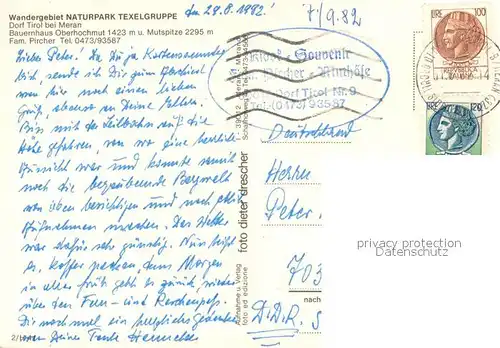 Wandergebiet NATURPARK TEXELGRUPPE
Dorf Tirol bei Meran
Bauernhaus Oberhochmut 1423 m u. Mutspitze 2295 m
Fam. Pircher Tel. 0473/93587
den 29.8.1982!
7/9.82
Lieber Peter! Da Du ja Kartensammler
bist, schicke ich Dir zum Geburtstag von
hier noch einen lieben
Gruß, ebenso an Deine Eltern.
Bin mit der Seilbahn auf die
Höhe gefahren, von wo eine herrliche
Aussicht war und konnte somit
noch die begrabende Bergwelt
von oben besichtigen und noch
Aufnahmen machen. Das Wetter
war dafür sehr günstig. Nun heißt
es, Koffer packen, denn Morgen
in aller früh geht es zurück, wieder
über den Fern- und Reschenpaß.
Dir noch mal ein herzliches Gedenken
von Deiner Tante
Souvenir
Dorf Tirol Nr. 9
Tel. (0473) 93587
Deutschland
Herrn
Peter
703
D.D.R.
foto dieter drescher
Aufnahme u. Verlag
foto ed edizione
nach
LIRE 100
privacy protection
DATENSCHUTZ